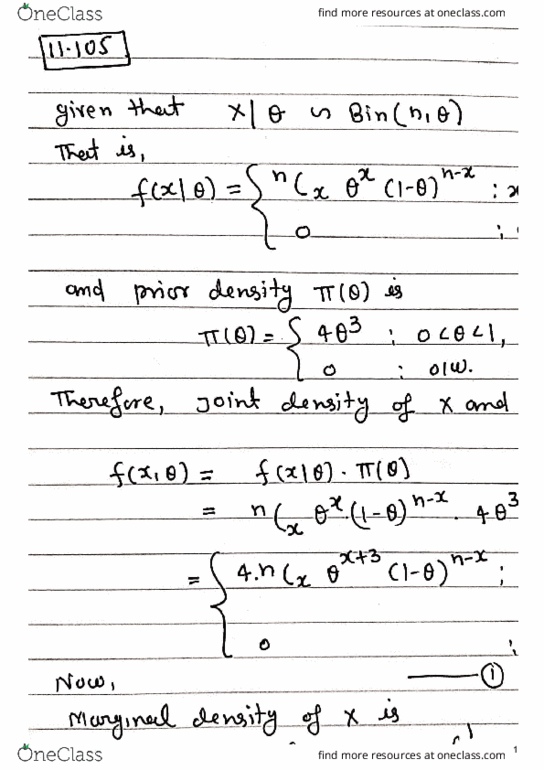 OneClass find more resources at oneclass.com
11.105
given that x|θ ∽ Bin(n,θ)
That is,
f(x|θ) = { ⁿCₓ θˣ (1-θ)ⁿ⁻ˣ : x
0 ;
and prior density π(θ) is
π(θ) = { 4θ³ ; 0<θ<1,
0 : o|w.
Therefore, joint density of x and
f(x,θ) = f(x|θ) · π(θ)
= ⁿCₓ θˣ·(1-θ)ⁿ⁻ˣ · 4θ³
= { 4.ⁿCₓ θˣ⁺³ (1-θ)ⁿ⁻ˣ ;
0 ;
Now, ①
Marginal density of x is
OneClass find more resources at oneclass.com 1